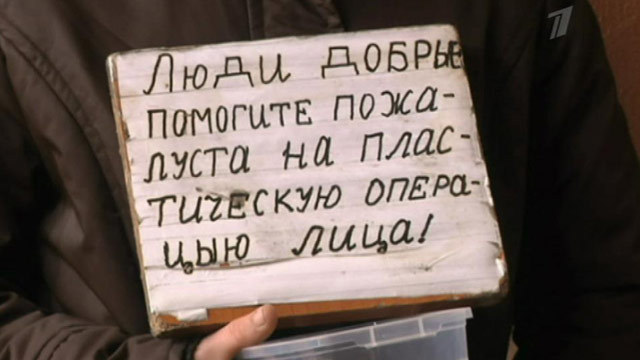 Люди добрые
помогите пожа-
луста на плас-
тическую опера-
цыю лица!